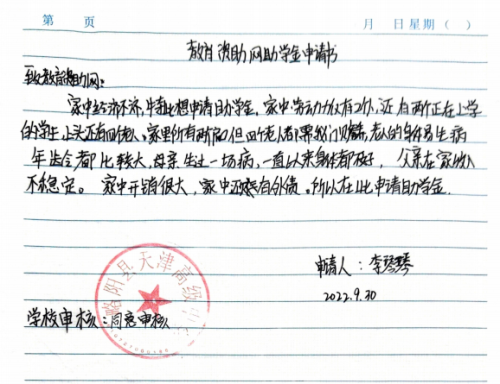 第 页 月 日 星期（ ）
教育资助网助学金申请书
致教育资助网：
家中经济不济，特此想申请助学金，家中劳动力仅有2个，还有两个正在上学
的学生，上头还有四个老人，家里所有两间，但四个老人都需我们赡养，老人的身体易生病
年龄都比较大，母亲生过一场病，一直以来身体都不好，父亲在家收入
不稳定。家中开销很大，家中还有外债。所以在此申请助学金。
申请人：李琴琴
2022.9.30
略阳县天津高级中
学校审核：同意审核